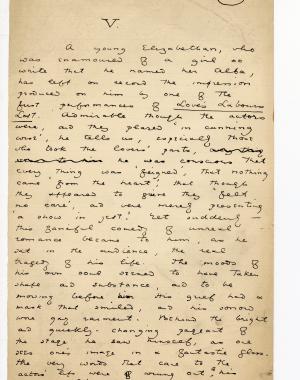 V.
A young Elizabethan, who
was enamoured of a girl so
white that he named her Alba,
has left on record the impression
produced on him by one of the
first performances of Love's Labours
Lost. Admirable though the actors
were, and they played 'in cunning
wise' he tells us, especially those
who took the lovers' parts,
he was conscious that
everything was 'feigned', that nothing
came 'from the heart', that though
they appeared to grieve they 'felt
no care', and were merely presenting
'a show in jest'. Yet suddenly
this fanciful comedy of unreal
romance became to him, as he
sat in the audience, the real
tragedy of his life. The moods of
his own soul seemed to have taken
shape and substance, and to be
moving before him. His grief had a
mask that smiled, and his sorrow
wore gay raiment. Behind the bright
and quickly-changing pageant of
the stage, he saw himself, as one
sees one's image in a fantastic glass.
The very words that came to the
actors' lips were wrung out of his